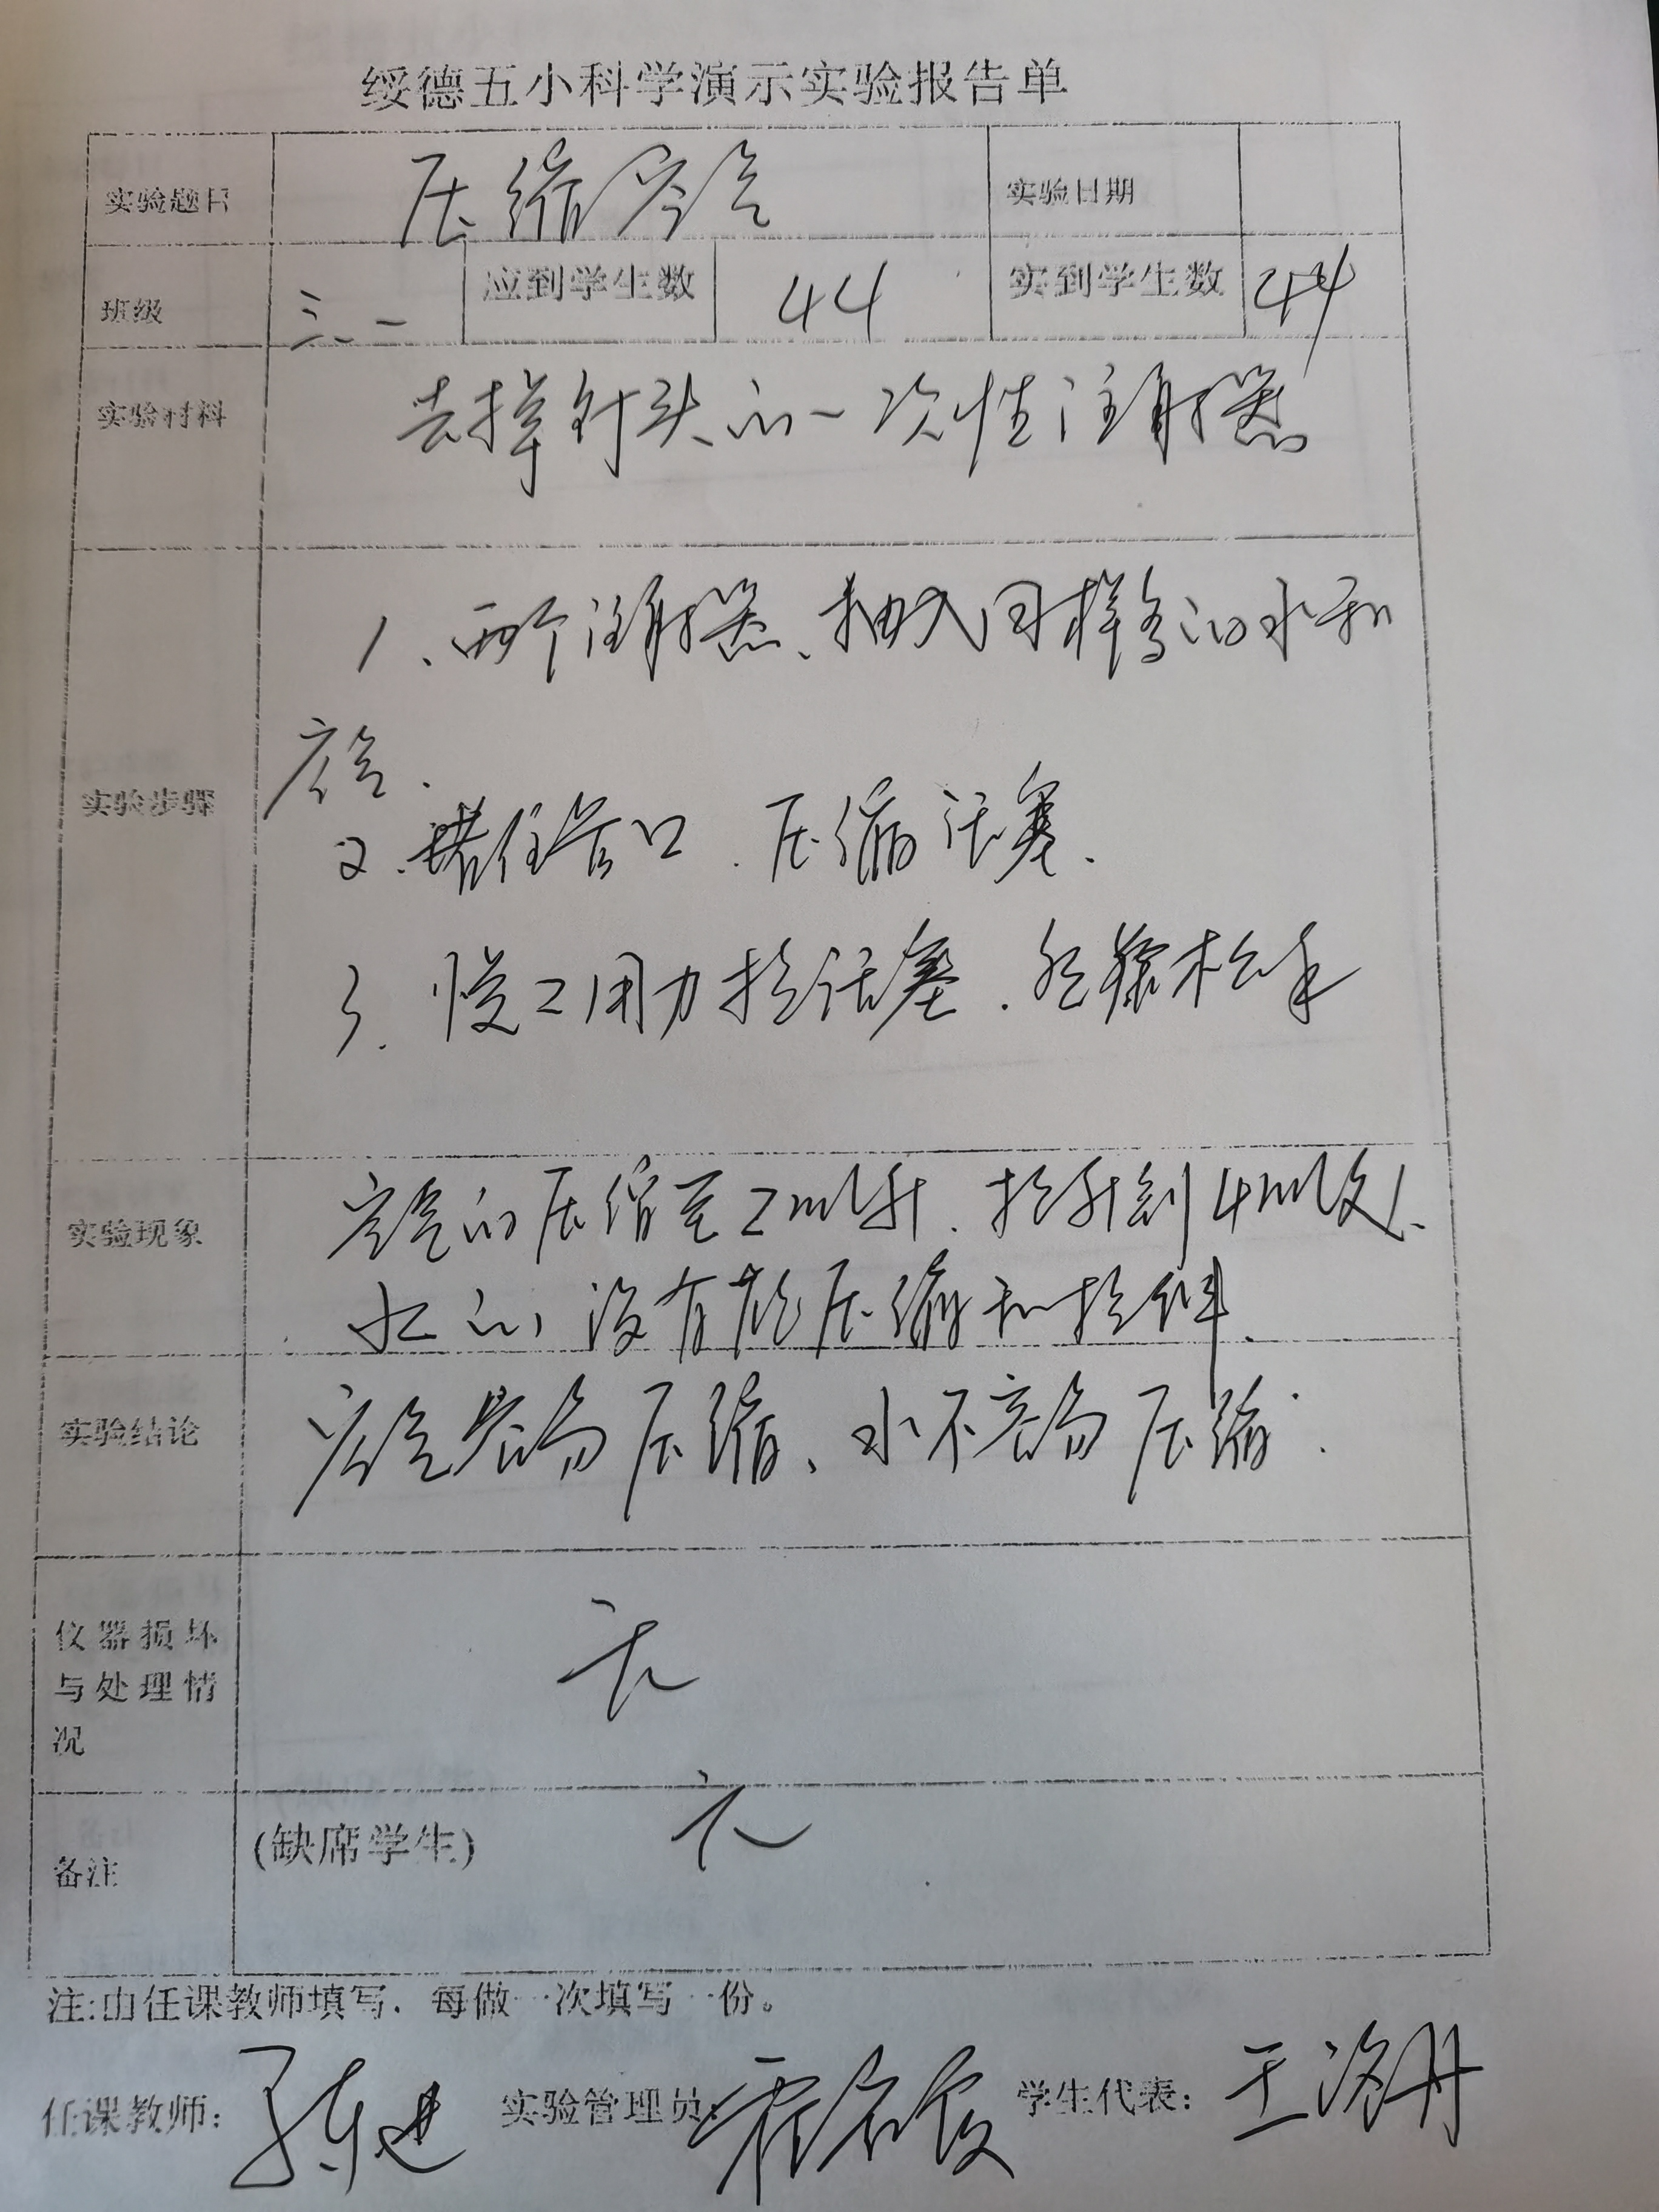 绥德五小科学演示实验报告单
实验题目 压缩空气 实验日期
班级 三、一 应到学生数 44 实到学生数 44
实验材料 去掉针头的一次性注射器
1、两个注射器、抽入同样多的水和
空气.
实验步骤
2.堵住管口.压缩活塞.
3.慢慢用力拉活塞.然后松手
实验现象 空气的压缩至2ml升.拉升到4ml处、
水的没有能压缩和拉伸.
实验结论 空气容易压缩、水不容易压缩.
仪器损坏
与处理情 无
况
备注 (缺席学生) 无
注:由任课教师填写.每做一次填写一份。
任课教师: 实验管理员: 学生代表: 王洛丹